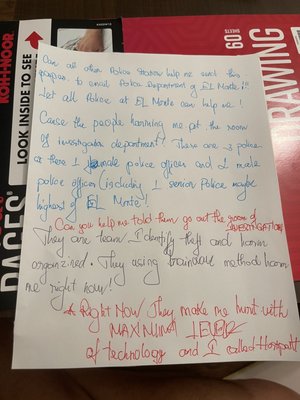 KOH-I-NOOR
LOOK INSIDE TO SEE
60 SHEETS
DRAWING
PAGES
Can all other Police Station help me send this
papers to email Police Department of EL Monte!!
Let all Police at EL Monte can help me!
Cause the people harming me at the room
of investigator department! There are 3 police
at there 1 female police officer and 2 male
police officer (including 1 senior Police maybe
highest of EL Monte!
Can you help me told them go out the room of
INVESTIGATION
They are team Identify theft and harm
organized. They using brainwave method harm
me right now!
* Right Now They make me hurt with
MAXIMUM LEVER
of technology and I called